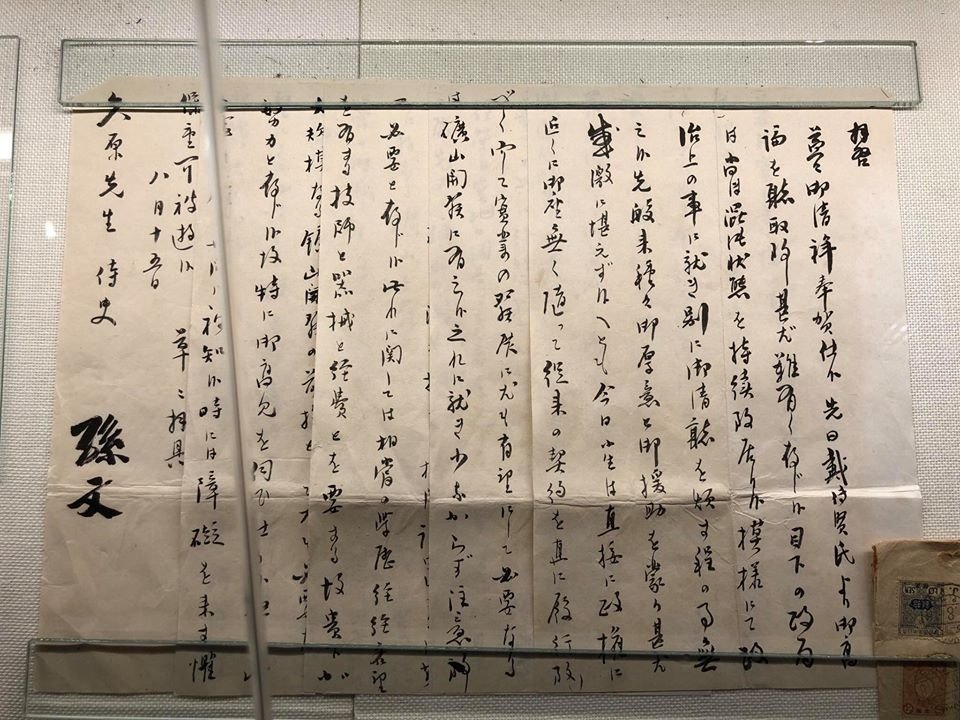 拝啓
益々御清祥奉賀仕候 先日戴傳賢氏より御高
諭を聴取致し甚だ難有く存じ候 目下の政局
は尚ほ混沌状態を持続致居り候模様にて政
治上の事に就き別に御清聴を煩す程の事無
之候 先般来種々御厚意と御援助を蒙り甚だ
感激に堪えず候へども今日小生は直接に政権に
近くに御座無く随って従来の契約を直に履行致
べく 而して実業の発展に尤も有望にして必要なる
は礦山開発に有之候 之れに就き少なからず注意
必要と存じ候 此れに関しては相当の学歴経験名望
を有する技師と器械と経費とを要する故貴下
大規模なる鉱山開発の
努力と存じ候故特に御高見を伺ひ
承知候時には障礙を来す懼
可被遊候 草々拝具
八月十五日
久原先生 侍史
孫文